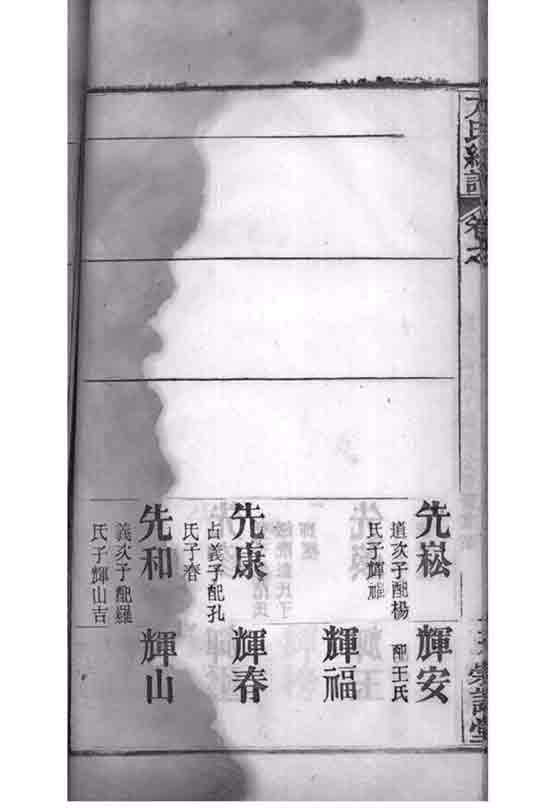 氏
卷之
先崧
道次子配楊
氏子輝
輝安
配王氏
輝福
先康
占義子配孔
氏子春
輝春
先和
義次子配羅
氏子輝山吉
輝山
堂